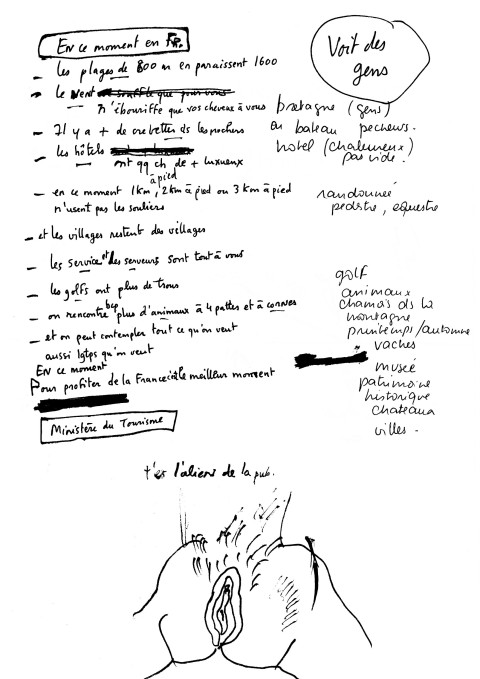 En ce moment en Fr.
Voit des
gens
_ les plages de 800 m en paraissent 1600
_ le vent souffle que pour vous
n'ébouriffe que vos cheveux à vous
bretagne (gens)
_ Il y a + de crevettes ds les rochers
ou bateau pecheurs.
_ les hôtels
hotel (chaleureux)
ont qq ch de + luxueux
pas vide.
à pied
_ en ce moment 1km, 2km à pied ou 3 km à pied
randonnée
n'usent pas les souliers
pedestre, equestre
_ et les villages restent des villages
_ les service et des serveurs sont tout à vous
golf
_ les golfs ont plus de trous
animaux
_ on rencontre bcp plus d'animaux à 4 pattes et à cornes
chamois ds la
montagne
_ et on peut contempler tout ce qu'on veut
printemps/automne
aussi lgtps qu'on veut
vaches
En ce moment
musée
Pour profiter de la France le meilleur moment
patrimoine
historique
chateaux
Ministère du Tourisme
villes.
t'es l'aliens de la pub.